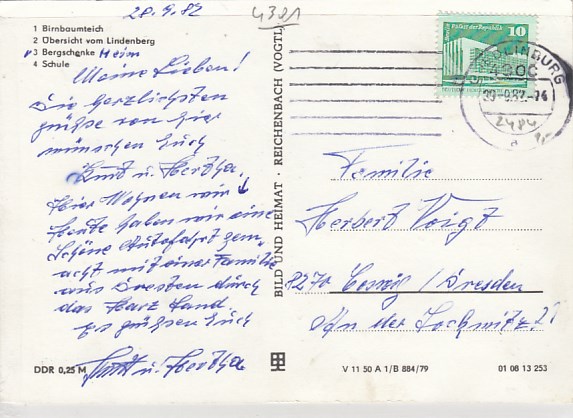 28.9.82
4381
1 Birnbaumteich
2 Übersicht vom Lindenberg
3 Bergschenke Heim
4 Schule
Meine Lieben!
Die herzlichsten
grüße von hier
wünschen Euch
Kurt u. Hertha.
Hier Wohnen wir
Heute haben wir eine
Schöne Autofahrt gem-
acht mit einer Familie
aus Dresten durch
das Harz Land
Es grüßen Euch
Kurt u. Hertha
DDR 0,25 M
BILD UND HEIMAT · REICHENBACH (VOGTL)
Palast der Republik
10
QUEDLINBURG
-9.82.-14
Familie
Herbert Voigt
8270 Coswig / Dresden
An der Lockwitz 21
V 11 50 A 1/B 884/79
01 08 13 253